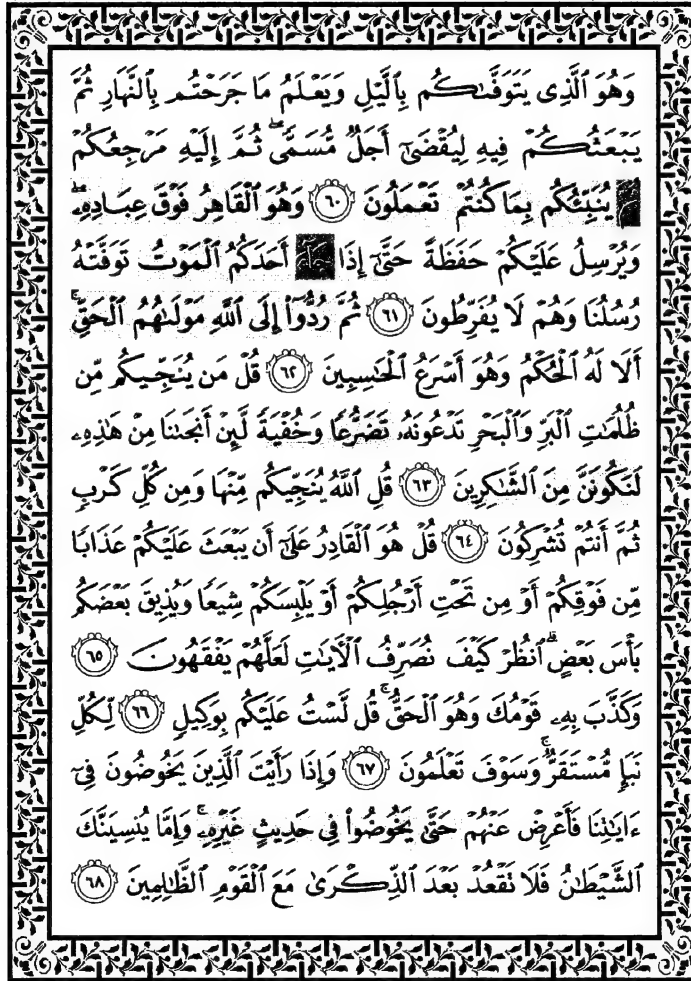 وَهُوَ ٱلَّذِى يَتَوَفَّىٰكُم بِٱلَّيْلِ وَيَعْلَمُ مَا جَرَحْتُم بِٱلنَّهَارِ ثُمَّ
يَبْعَثُكُمْ فِيهِ لِيُقْضَىٰٓ أَجَلٌ مُّسَمًّى ۖ ثُمَّ إِلَيْهِ مَرْجِعُكُمْ
يُنَبِّئُكُم بِمَا كُنتُمْ تَعْمَلُونَ ٦٠ وَهُوَ ٱلْقَاهِرُ فَوْقَ عِبَادِهِۦ ۖ
وَيُرْسِلُ عَلَيْكُمْ حَفَظَةً حَتَّىٰٓ إِذَا أَحَدَكُمُ ٱلْمَوْتُ تَوَفَّتْهُ
رُسُلُنَا وَهُمْ لَا يُفَرِّطُونَ ٦١ ثُمَّ رُدُّوٓا۟ إِلَى ٱللَّهِ مَوْلَىٰهُمُ ٱلْحَقِّ ۚ
أَلَا لَهُ ٱلْحُكْمُ وَهُوَ أَسْرَعُ ٱلْحَٰسِبِينَ ٦٢ قُلْ مَن يُنَجِّيكُم مِّن
ظُلُمَٰتِ ٱلْبَرِّ وَٱلْبَحْرِ تَدْعُونَهُۥ تَضَرُّعًا وَخُفْيَةً لَّئِنْ أَنجَىٰنَا مِنْ هَٰذِهِۦ
لَنَكُونَنَّ مِنَ ٱلشَّٰكِرِينَ ٦٣ قُلِ ٱللَّهُ يُنَجِّيكُم مِّنْهَا وَمِن كُلِّ كَرْبٍ
ثُمَّ أَنتُمْ تُشْرِكُونَ ٦٤ قُلْ هُوَ ٱلْقَادِرُ عَلَىٰٓ أَن يَبْعَثَ عَلَيْكُمْ عَذَابًا
مِّن فَوْقِكُمْ أَوْ مِن تَحْتِ أَرْجُلِكُمْ أَوْ يَلْبِسَكُمْ شِيَعًا وَيُذِيقَ بَعْضَكُم
بَأْسَ بَعْضٍ ۗ ٱنظُرْ كَيْفَ نُصَرِّفُ ٱلْءَايَٰتِ لَعَلَّهُمْ يَفْقَهُونَ ٦٥
وَكَذَّبَ بِهِۦ قَوْمُكَ وَهُوَ ٱلْحَقُّ ۚ قُل لَّسْتُ عَلَيْكُم بِوَكِيلٍ ٦٦ لِّكُلِّ
نَبَإٍ مُّسْتَقَرٌّ ۚ وَسَوْفَ تَعْلَمُونَ ٦٧ وَإِذَا رَأَيْتَ ٱلَّذِينَ يَخُوضُونَ فِىٓ
ءَايَٰتِنَا فَأَعْرِضْ عَنْهُمْ حَتَّىٰ يَخُوضُوا۟ فِى حَدِيثٍ غَيْرِهِۦ ۚ وَإِمَّا يُنسِيَنَّكَ
ٱلشَّيْطَٰنُ فَلَا تَقْعُدْ بَعْدَ ٱلذِّكْرَىٰ مَعَ ٱلْقَوْمِ ٱلظَّٰلِمِينَ ٦٨